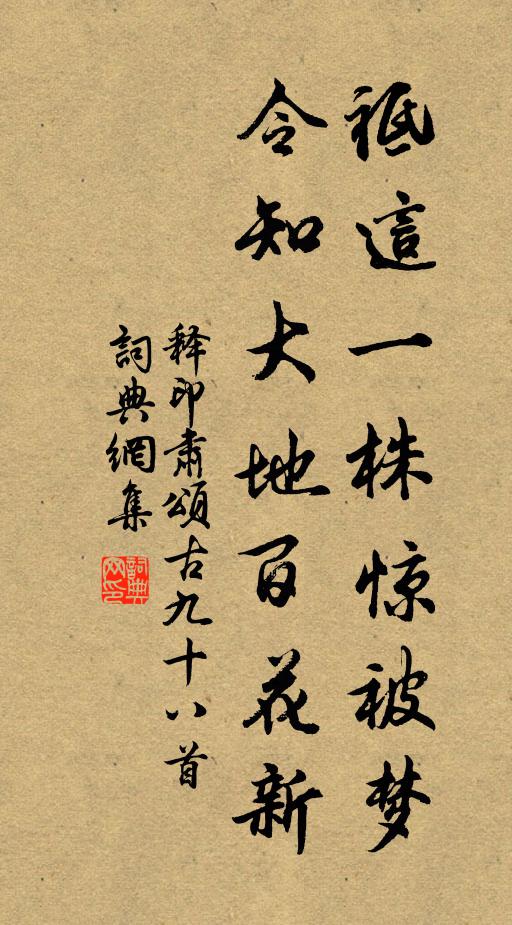 祗這一株惊被梦
令知大地百花新
释印肃頌古九十八首
詞典網集
詞典网印